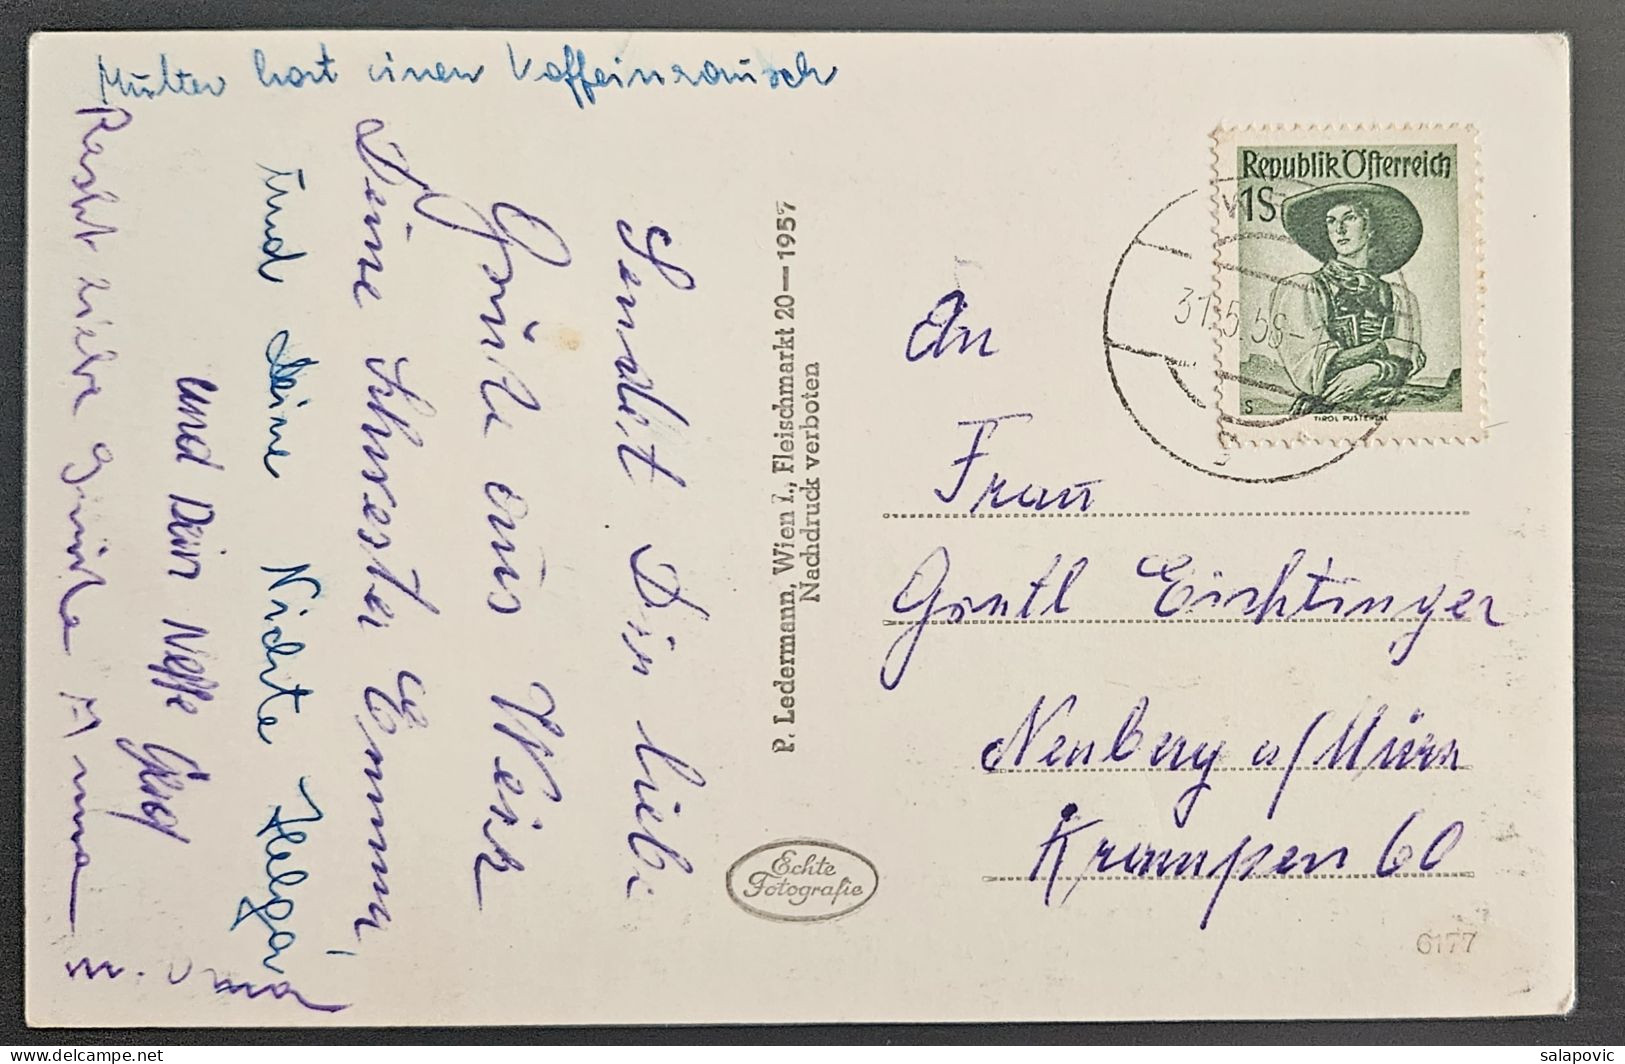 Mutter hat einen Koffeinrausch
Sendet Dir liebe
Grüße aus Wien
Deine Schwester Emma,
Und deine Nichte Helga
und Dein Neffe Gerd
Recht liebe Grüße Anna
Republik Österreich
1S
S
TIROL PUSTERTAL
31.5.58-
P. Ledermann, Wien I., Fleischmarkt 20—1957
Nachdruck verboten
Echte
Fotografie
An
Frau
Gretl Eichtinger
Neuberg a/Mürz
Krampen 60
6177
salapovic